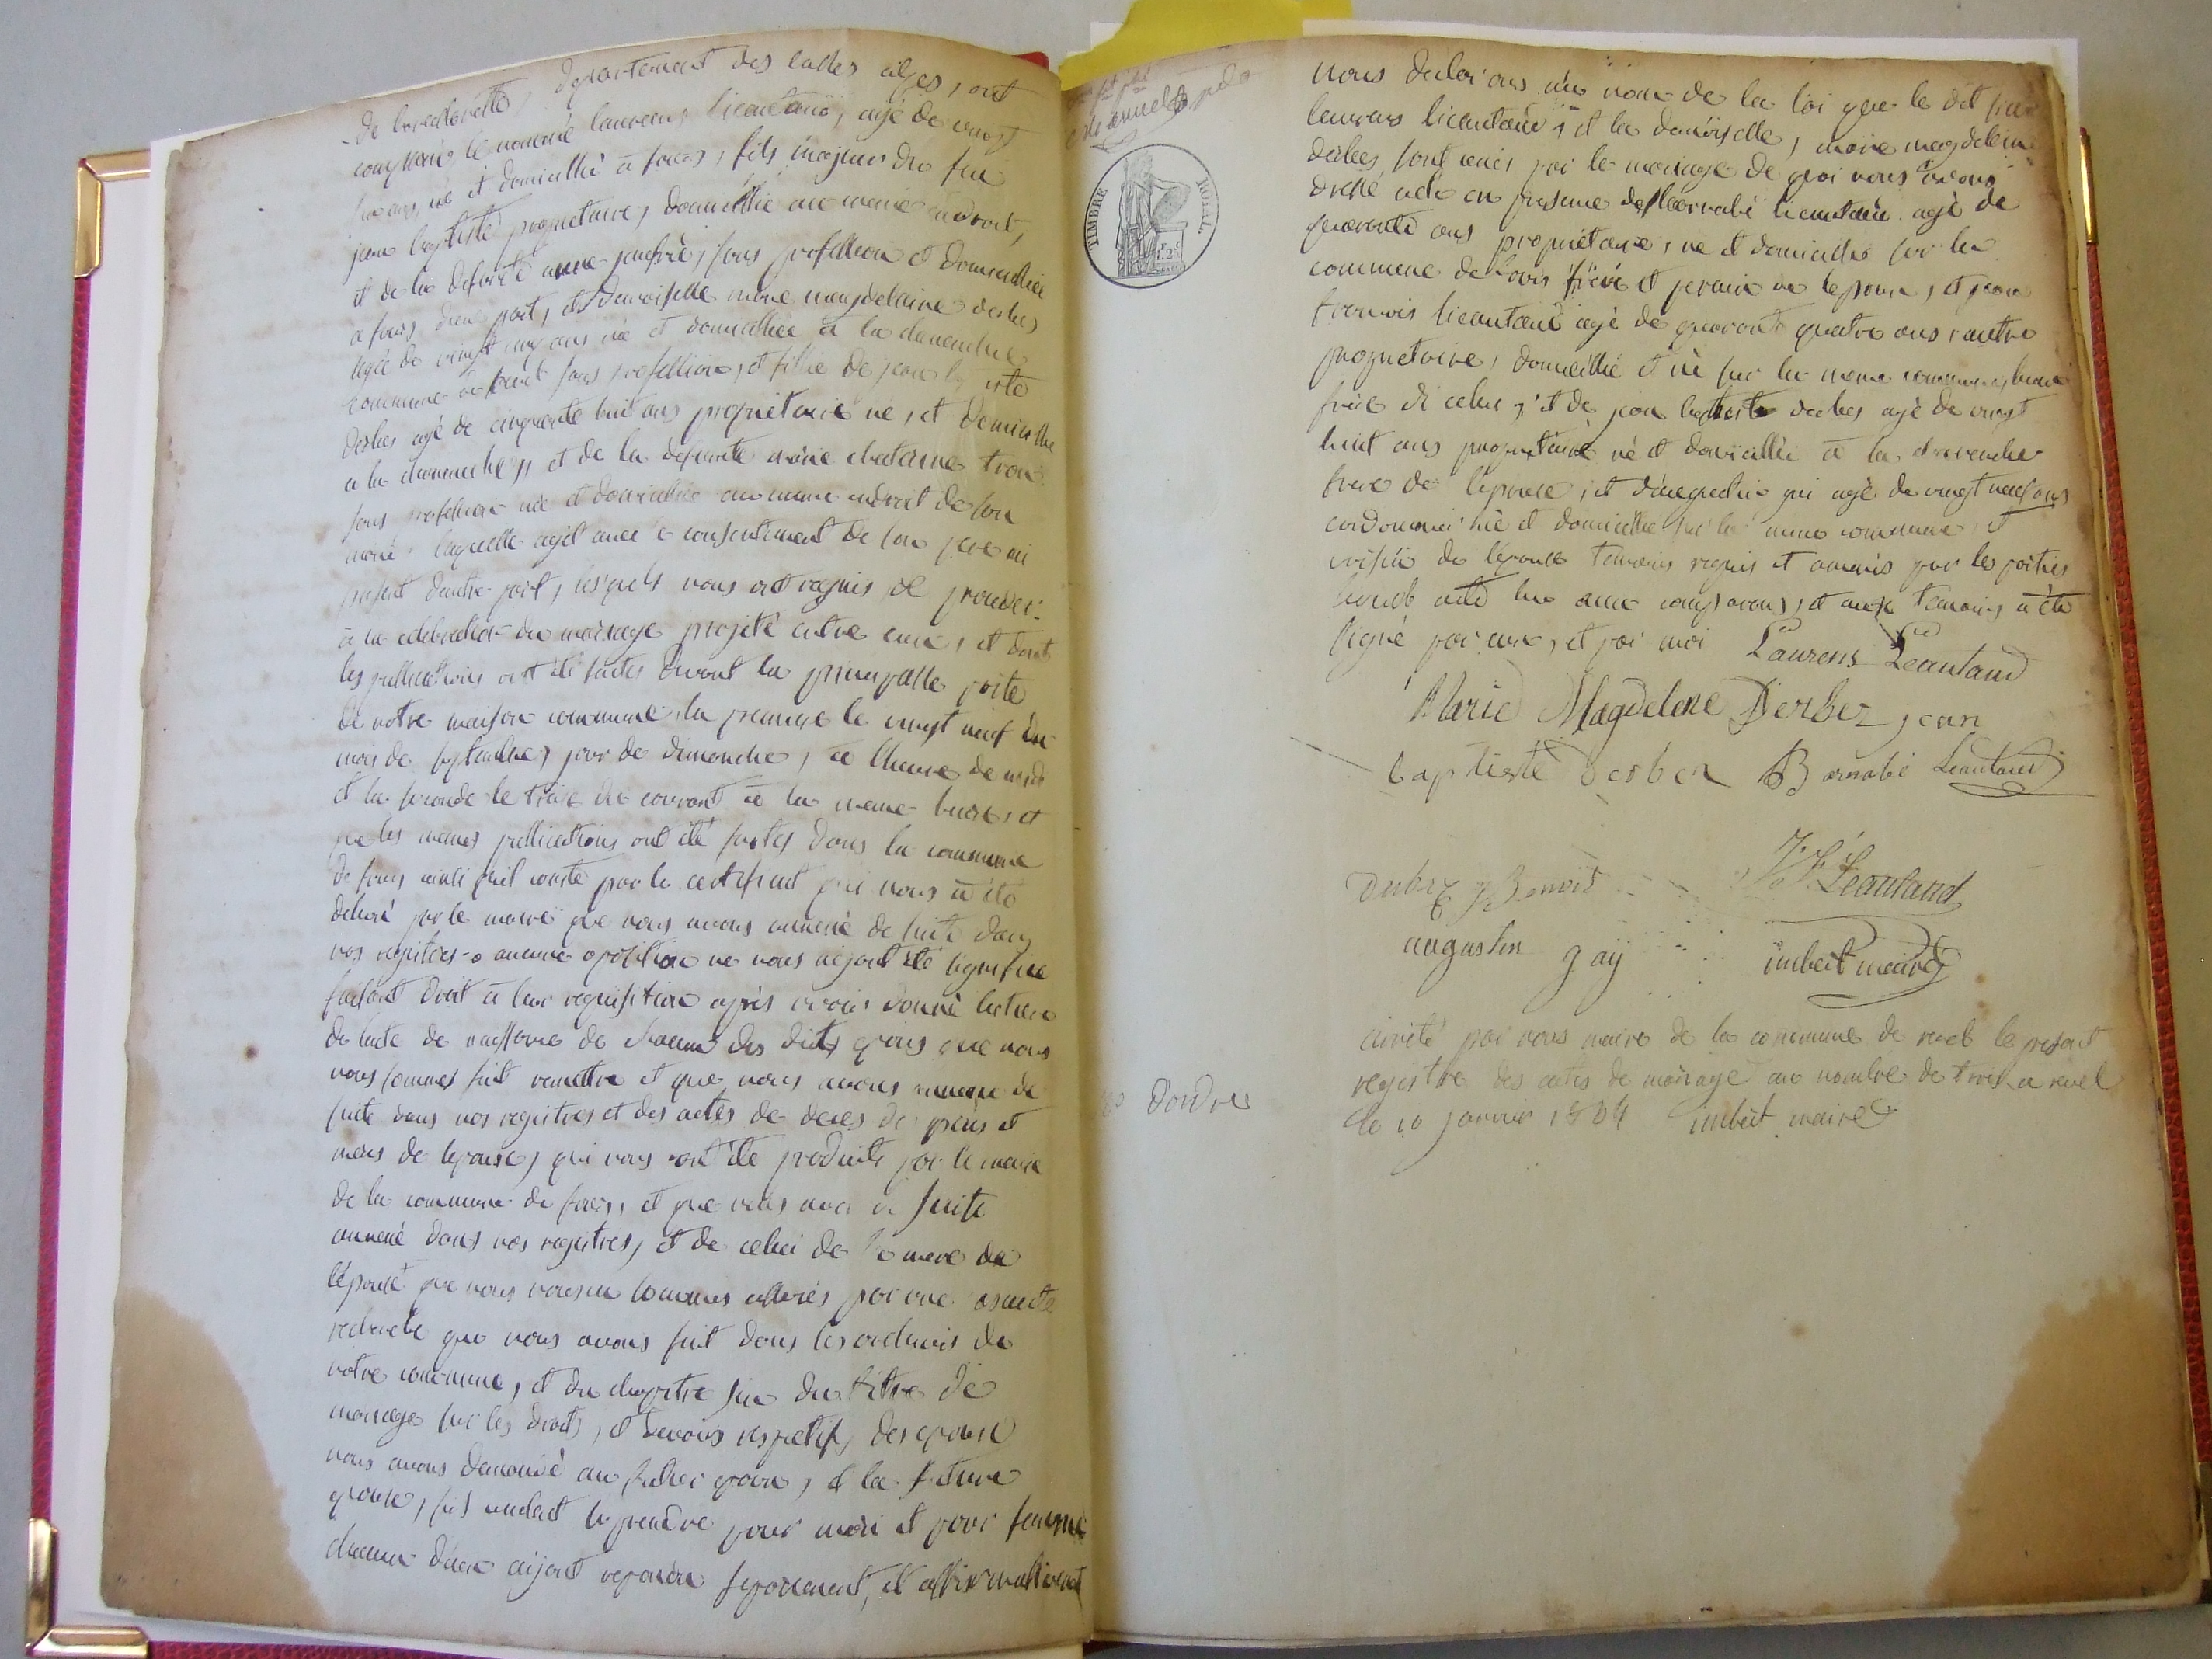 de département des basses alpes, ont
comparu le nommé laurens lieautaud, agé de vingt
ans, né et domicillié a fours, fils majeur du feu
jean baptiste propriétaire, domicillié au meme endroit,
et de la defunte anne jaufrè, sans profession et domicilliée
a fours, dune part, et Demoiselle marie magdelaine derbes
agée de vingt ans née et domicilliée a la
commune de revel sans profession, et fille de jean
derbes agé de cinquante huit ans propriétaire né, et domicillié
a la et de la defunte marie tron
sans profession née et domicilliée au meme endroit de son
laquelle agit avec le consentement de son pere ici
present dautre part, lesquels nous ont requis de proceder
à la celebration du mariage projeté entre eux, et dont
les publications ont été faites devant la principalle porte
de notre maison commune, la premiere le vingt neuf du
mois de septembre, jour de dimanche, a lheure de midi
et la seconde le treise du courant a la meme heure, et
que les memes publications ont été faites dans la commune
de fours ainsi quil conste par le certificat qui nous a été
delivré par le maire que nous avons annexé de suite dans
nos registres aucune opposition ne nous aijant été signifiee
faisant droit à leur requisition après avoir donné lecture
de lacte de naissance de chacun des dits epoux que nous
nous sommes fait remettre et que nous avons annexé de
suite dans nos registres et des actes de deces de pere et
mere de lepoux, qui nous ont été produits par le maire
de la commune de fours, et que nous avons de suite
annexé dans nos registres, et de celui de la mere de
lépouse que nous nous en sommes assurés par une exacte
recherche que nous avons fait dans les archives de
notre commune, et du chapitre six du titre de
mariage sur les droits, et devoirs respectifs des epoux
nous avons demandé au futur epoux, et la future
epouse, sils veulent se prendre pour mari et pour femme
chacun deux aijant repondu separement, et affirmativement
TIMBRE ROYAL
nous declarons au nom de la loi que le dit sieur
laurens lieautaud, et la demoiselle, marie magdeleine
derbes sont unis par le mariage de quoi nous avons
dressé acte en presence de barnabé lieautaud agé de
quarante ans propriétaire, né et domicillié sur la
commune de fours frére et germain de lepoux, et jean
francois lieautaud agé de quarante quatre ans, autre
propriétaire, domicillié et né sur la meme commune, beau
frère di celui, et de jean baptiste derbes agé de vingt
huit ans propriétaire né et domicillié à la
frere de lépouse, et daugustin gai agé de vingt neuf ans
cordonnier né et domicillié sur la meme commune et
voisin de lépouse temoins requis et amenés par les parties
acte lu aux comparans, et aux temoins a été
signé par eux, et par moi Laurens Leautaud
Marie Magdelene Derbez jean
baptiste derbez Barnabé Leautaud
derbez Benoit J F Léautaud
augustin gay imbert maire
dordre
arrêté par nous maire de la commune de revel le présent
registre des actes de mariage au nombre de trois a revel
le 10 janvier 1834 imbert maire